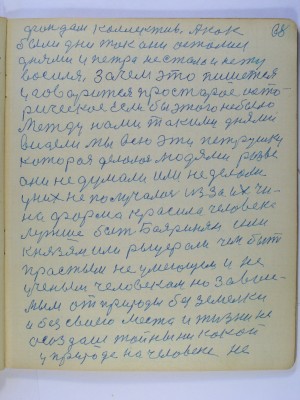 68
фондам коллектив. А как
были дни так они остались
днями и петра не стало и нету
василя, Зачем это пишется
и говорится про старое исто-
рическое если бы этого небыло
Между нами такими днями
видели мы всю эту петрушку
которая делалася людями разве
они не думали или не делали
у них не получалося из за их чи-
на форма красила человека
лучше быть Баярином или
князям или рыцерам чем быть
прастым не умеющем и не
ученым человекам но завис-
мым от природы без земельки
и без своего места и жизни не
создаш тайны никакой
у природе на человеке не